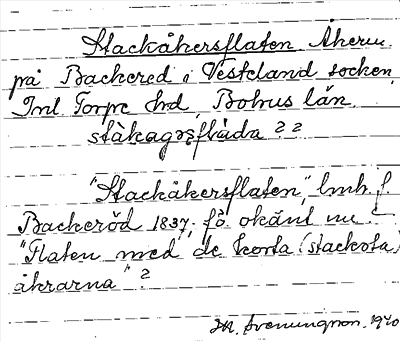 Stackåkersflaten Åkern
på Backered i Vesteland socken
Inl Torpe hrd, Bohus län.
stàkagṛṣflàda ? ?
"Stackåkersflaten", lmh. f
Backeröd 1837; få okänt nu
"Flaten med de korta (stackota)
åkrarna" ?
1940